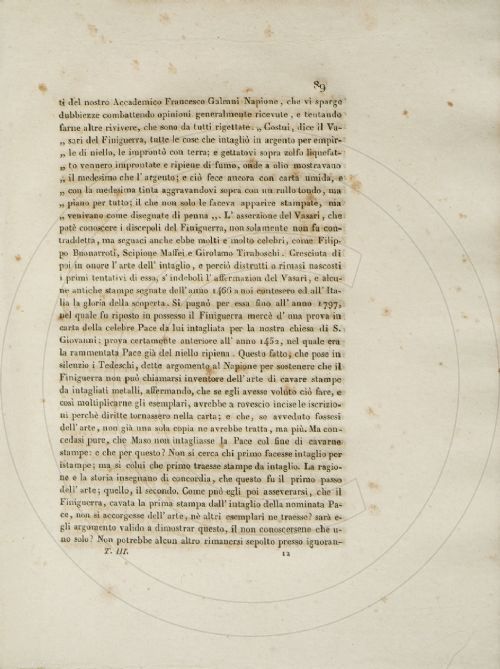 89
ti del nostro Accademico Francesco Galeani Napione, che vi sparge
dubbiezze combattendo opinioni generalmente ricevute, e tentando
farne altre rivivere, che sono da tutti rigettate. „ Costui, dice il Va-
„ sari del Finiguerra, tutte le cose che intagliò in argento per empir-
„ le di niello, le improntò con terra; e gettatovi sopra zolfo liquefat-
„ to vennero improntate e ripiene di fumo, onde a olio mostravano
„ il medesimo che l' argento; e ciò fece ancora con carta umida, e
„ con la medesima tinta aggravandovi sopra con un rullo tondo, ma
„ piano per tutto; il che non solo le faceva apparire stampate, ma
„ venivano come disegnate di penna „. L' asserzione del Vasari, che
potè conoscere i discepoli del Finiguerra, non solamente non fu con-
traddetta, ma seguaci anche ebbe molti e molto celebri, come Filip-
po Buonarroti, Scipione Maffei e Girolamo Tiraboschi. Cresciuta di
poi in onore l' arte dell' intaglio, e perciò distrutti o rimasi nascosti
i primi tentativi di essa, s' indebolì l' affermazion del Vasari, e alcu-
ne antiche stampe segnate dell' anno 1466 a noi contesero ed all' Ita-
lia la gloria della scoperta. Si pugnò per essa fino all' anno 1797,
nel quale fu riposto in possesso il Finiguerra mercè d' una prova in
carta della celebre Pace da lui intagliata per la nostra chiesa di S.
Giovanni: prova certamente anteriore all' anno 1452, nel quale era
la rammentata Pace già del niello ripiena. Questo fatto, che pose in
silenzio i Tedeschi, dette argomento al Napione per sostenere che il
Finiguerra non può chiamarsi inventore dell' arte di cavare stampe
da intagliati metalli, affermando, che se egli avesse voluto ciò fare, e
così moltiplicarne gli esemplari, avrebbe a rovescio incise le iscrizio-
ni perchè diritte tornassero nella carta; e che, se avveduto fossesi
dell' arte, non già una sola copia ne avrebbe tratta, ma più. Ma con-
cedasi pure, che Maso non intagliasse la Pace col fine di cavarne
stampe: e che per questo? Non si cerca chi primo facesse intaglio per
istampe; ma sì colui che primo traesse stampe da intaglio. La ragio-
ne e la storia insegnano di concordia, che questo fu il primo passo
dell' arte; quello, il secondo. Come può egli poi asseverarsi, che il
Finiguerra, cavata la prima stampa dall' intaglio della nominata Pa-
ce, non si accorgesse dell' arte, nè altri esemplari ne traesse? sarà e-
gli argomento valido a dimostrar questo, il non conoscersene che u-
no solo? Non potrebbe alcun altro rimanersi sepolto presso ignoran-
T. III. 12